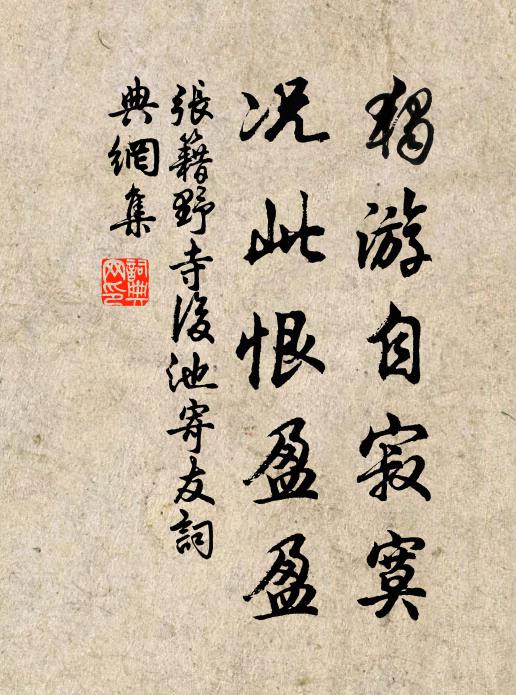 獨游自寂寞
況此恨盈盈
張籍野寺後池寄友詞
典網集
詞典
网印